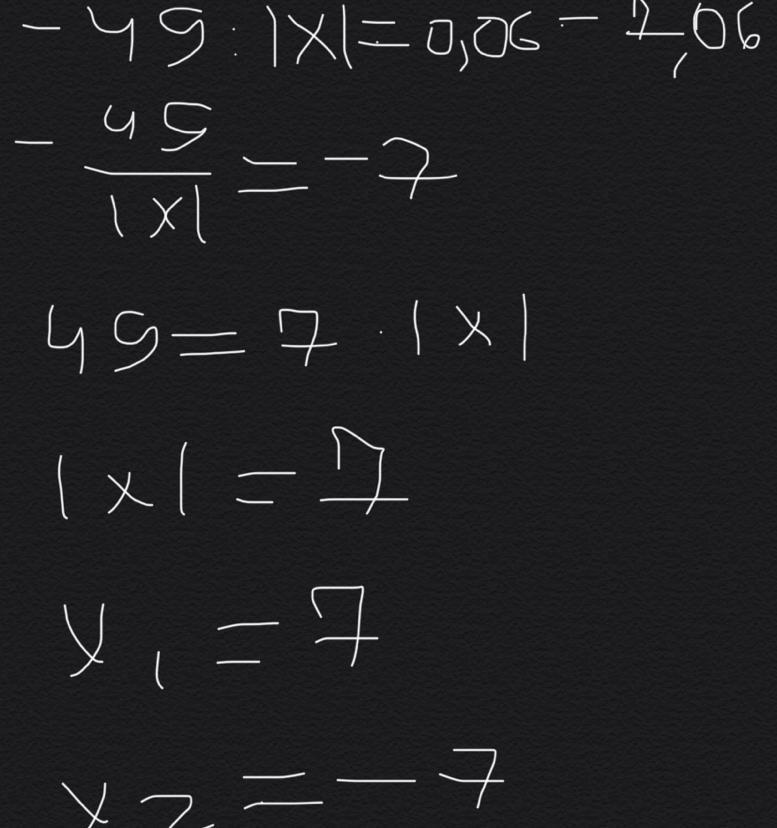 -49:|x|=0,06-7,06
-49/|x|=-7
49=7·|x|
|x|=7
x1=7
x2=-7